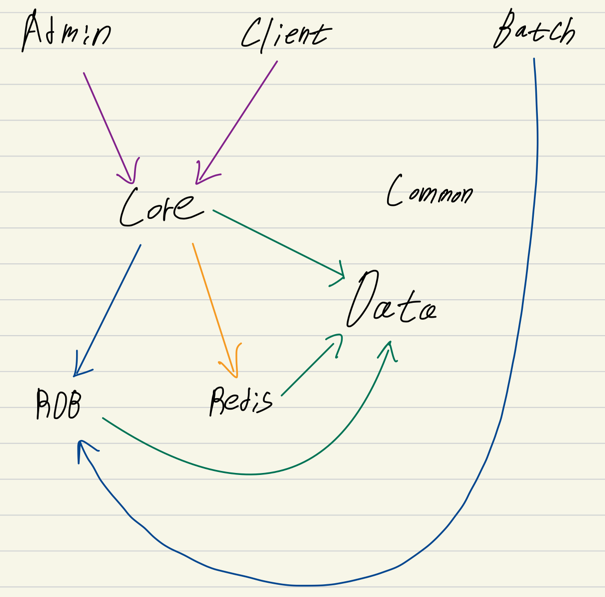 Admin Client Batch
Core
Common
Data
RDB Redis